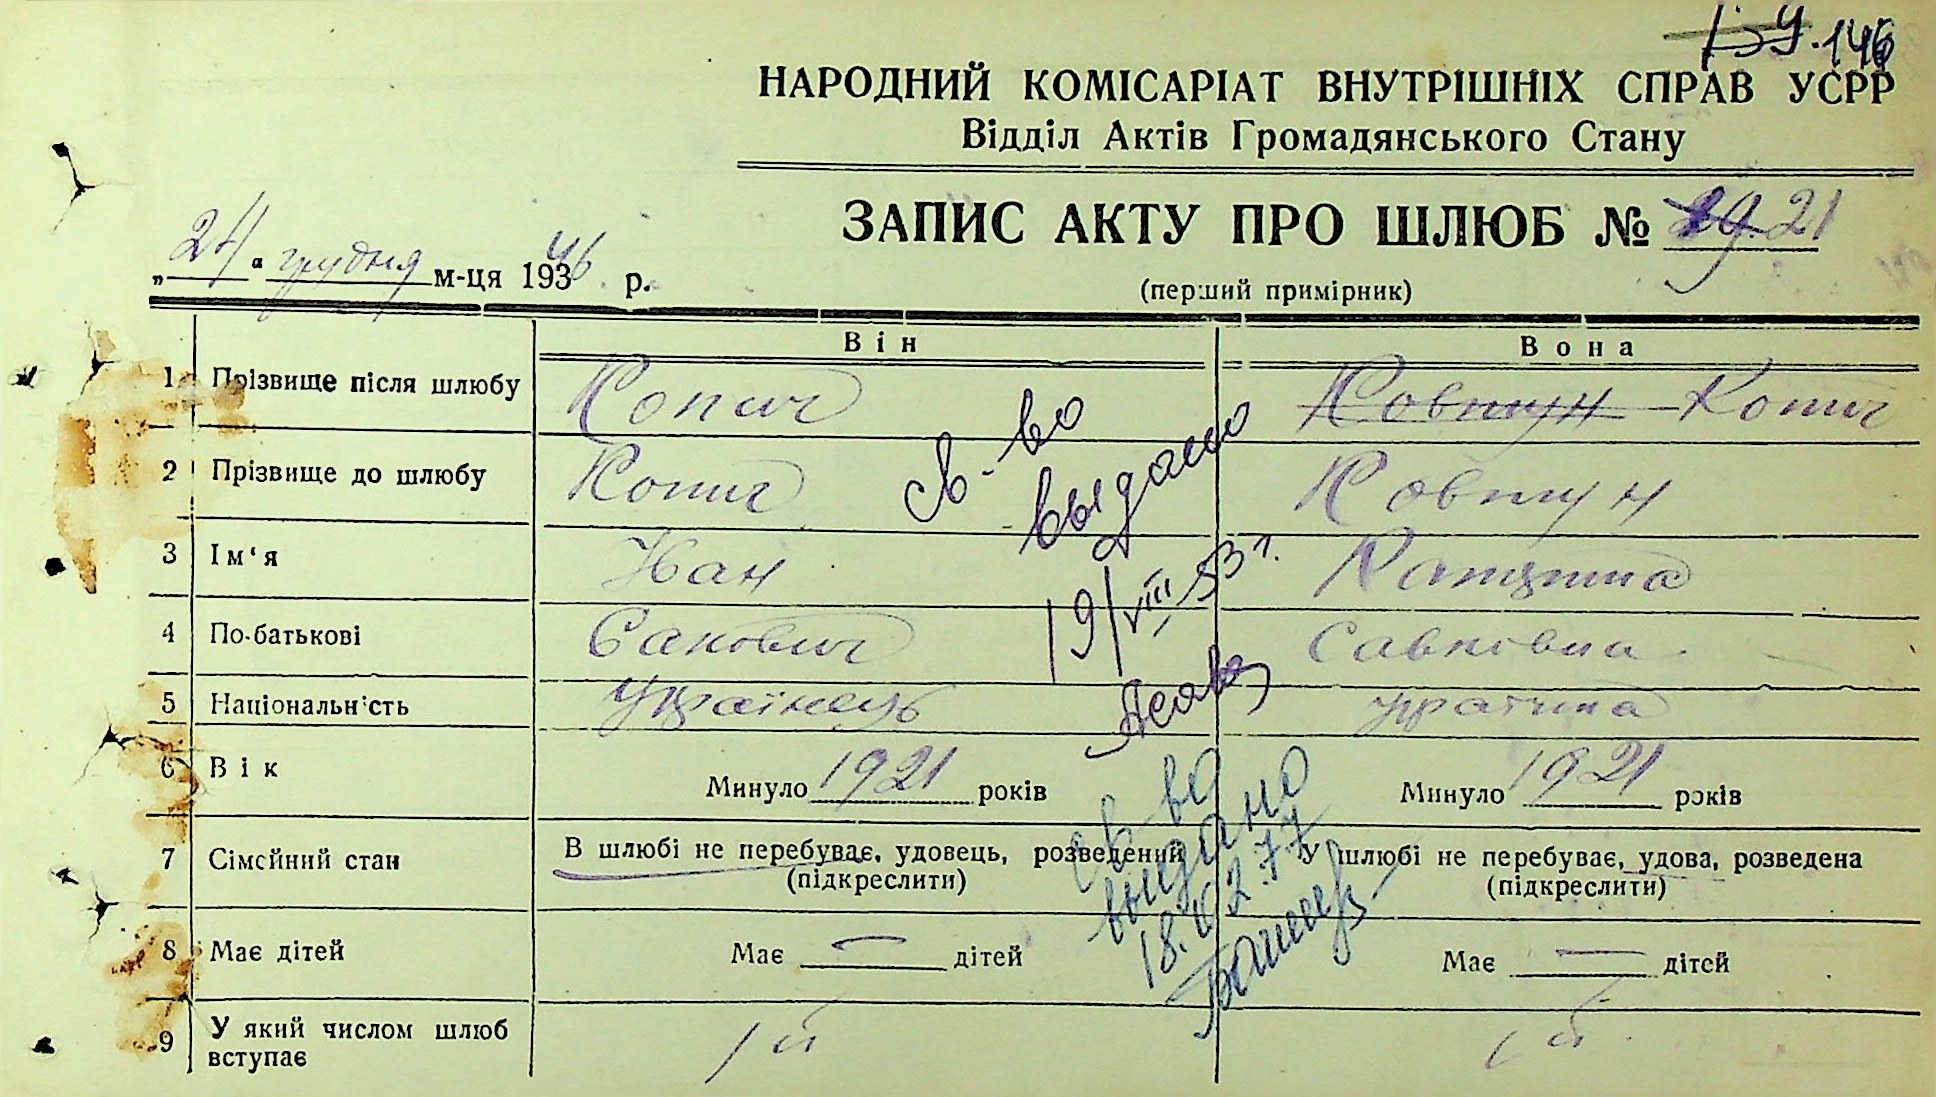 139. 146
НАРОДНИЙ КОМІСАРІАТ ВНУТРІШНІХ СПРАВ УСРР
Відділ Актів Громадянського Стану
ЗАПИС АКТУ ПРО ШЛЮБ № 21
(перший примірник)
„24" грудня м-ця 1946 р.
Він Вона
1 Прізвище після шлюбу Копич Ковтун - Копич
2 Прізвище до шлюбу Копич Ковтун
3 Ім'я Іван
4 По-батькові Савковна
5 Національність Українець українка
6 Вік Минуло 1921 років Минуло 1921 років
7 Сімейний стан В шлюбі не перебуває, удовець, розведений У шлюбі не перебуває, удова, розведена
(підкреслити) (підкреслити)
8 Має дітей Має — дітей Має — дітей
9 У який числом шлюб вступає 1й 1й
Св-во
выдано
19/VIII 53 г.
Св-во
выдано
18.02.77